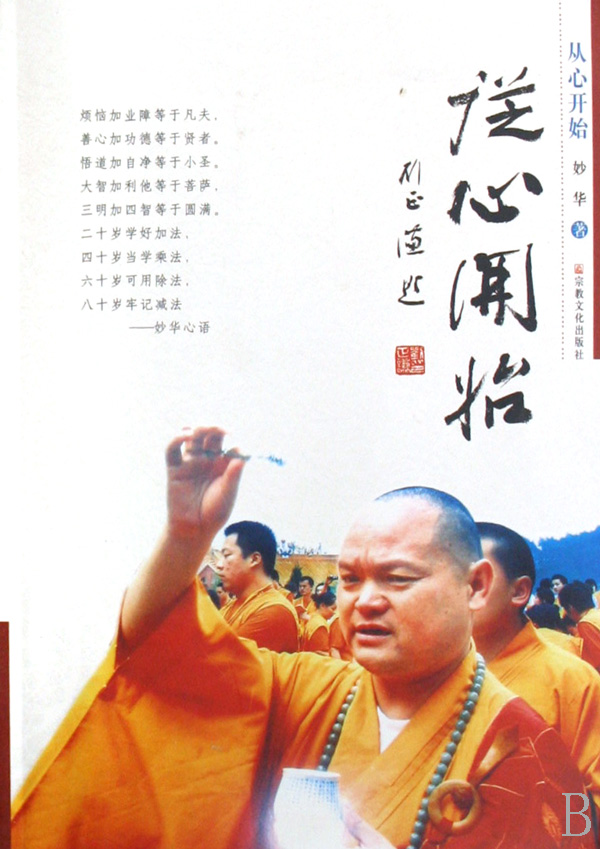 從心開始
从心开始
妙华 著
宗教文化出版社
烦恼加业障等于凡夫，
善心加功德等于贤者。
悟道加自净等于小圣。
大智加利他等于菩萨，
三明加四智等于圆满。
二十岁学好加法，
四十岁当学乘法，
六十岁可用除法，
八十岁牢记减法
——妙华心语
B